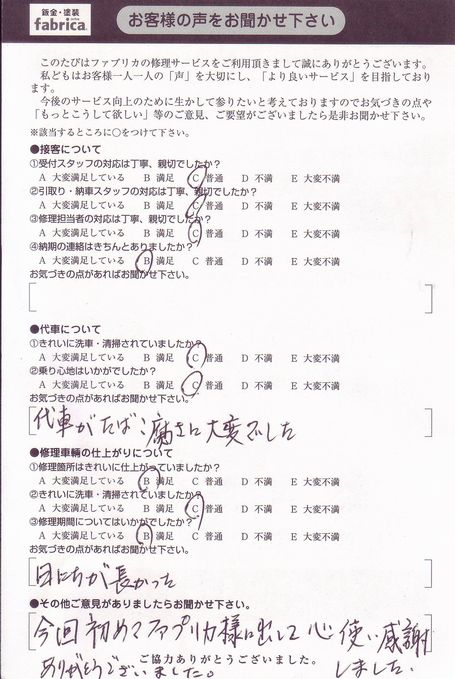 鈑金・塗装
fabrica
お客様の声をお聞かせ下さい
このたびはファブリカの修理サービスをご利用頂きまして誠にありがとうございます。
私どもはお客様一人一人の「声」を大切にし、「より良いサービス」を目指しており
ます。
今後のサービス向上のために生かして参りたいと考えておりますのでお気づきの点や
「もっとこうして欲しい」等のご意見、ご要望がございましたら是非お聞かせ下さい。
※該当するところに○をつけて下さい。
●接客について
①受付スタッフの対応は丁寧、親切でしたか?
A 大変満足している B 満足 C 普通 D 不満 E 大変不満
②引取り・納車スタッフの対応は丁寧、親切でしたか?
A 大変満足している B 満足 C 普通 D 不満 E 大変不満
③修理担当者の対応は丁寧、親切でしたか?
A 大変満足している B 満足 C 普通 D 不満 E 大変不満
④納期の連絡はきちんとありましたか?
A 大変満足している B 満足 C 普通 D 不満 E 大変不満
お気づきの点があればお聞かせ下さい。
●代車について
①きれいに洗車・清掃されていましたか?
A 大変満足している B 満足 C 普通 D 不満 E 大変不満
②乗り心地はいかがでしたか?
A 大変満足している B 満足 C 普通 D 不満 E 大変不満
お気づきの点があればお聞かせ下さい。
代車がたばこ腐さに大変でした
●修理車輌の仕上がりについて
①修理箇所はきれいに仕上がっていましたか?
A 大変満足している B 満足 C 普通 D 不満 E 大変不満
②きれいに洗車・清掃されていましたか?
A 大変満足している B 満足 C 普通 D 不満 E 大変不満
③修理期間についてはいかがでしたか?
A 大変満足している B 満足 C 普通 D 不満 E 大変不満
お気づきの点があればお聞かせ下さい。
日にちが長かった
●その他ご意見がありましたらお聞かせ下さい。
今回初めてファブリカ様に出して心使い感謝
しました.
ありがとうございました。
ご協力ありがとうございました。